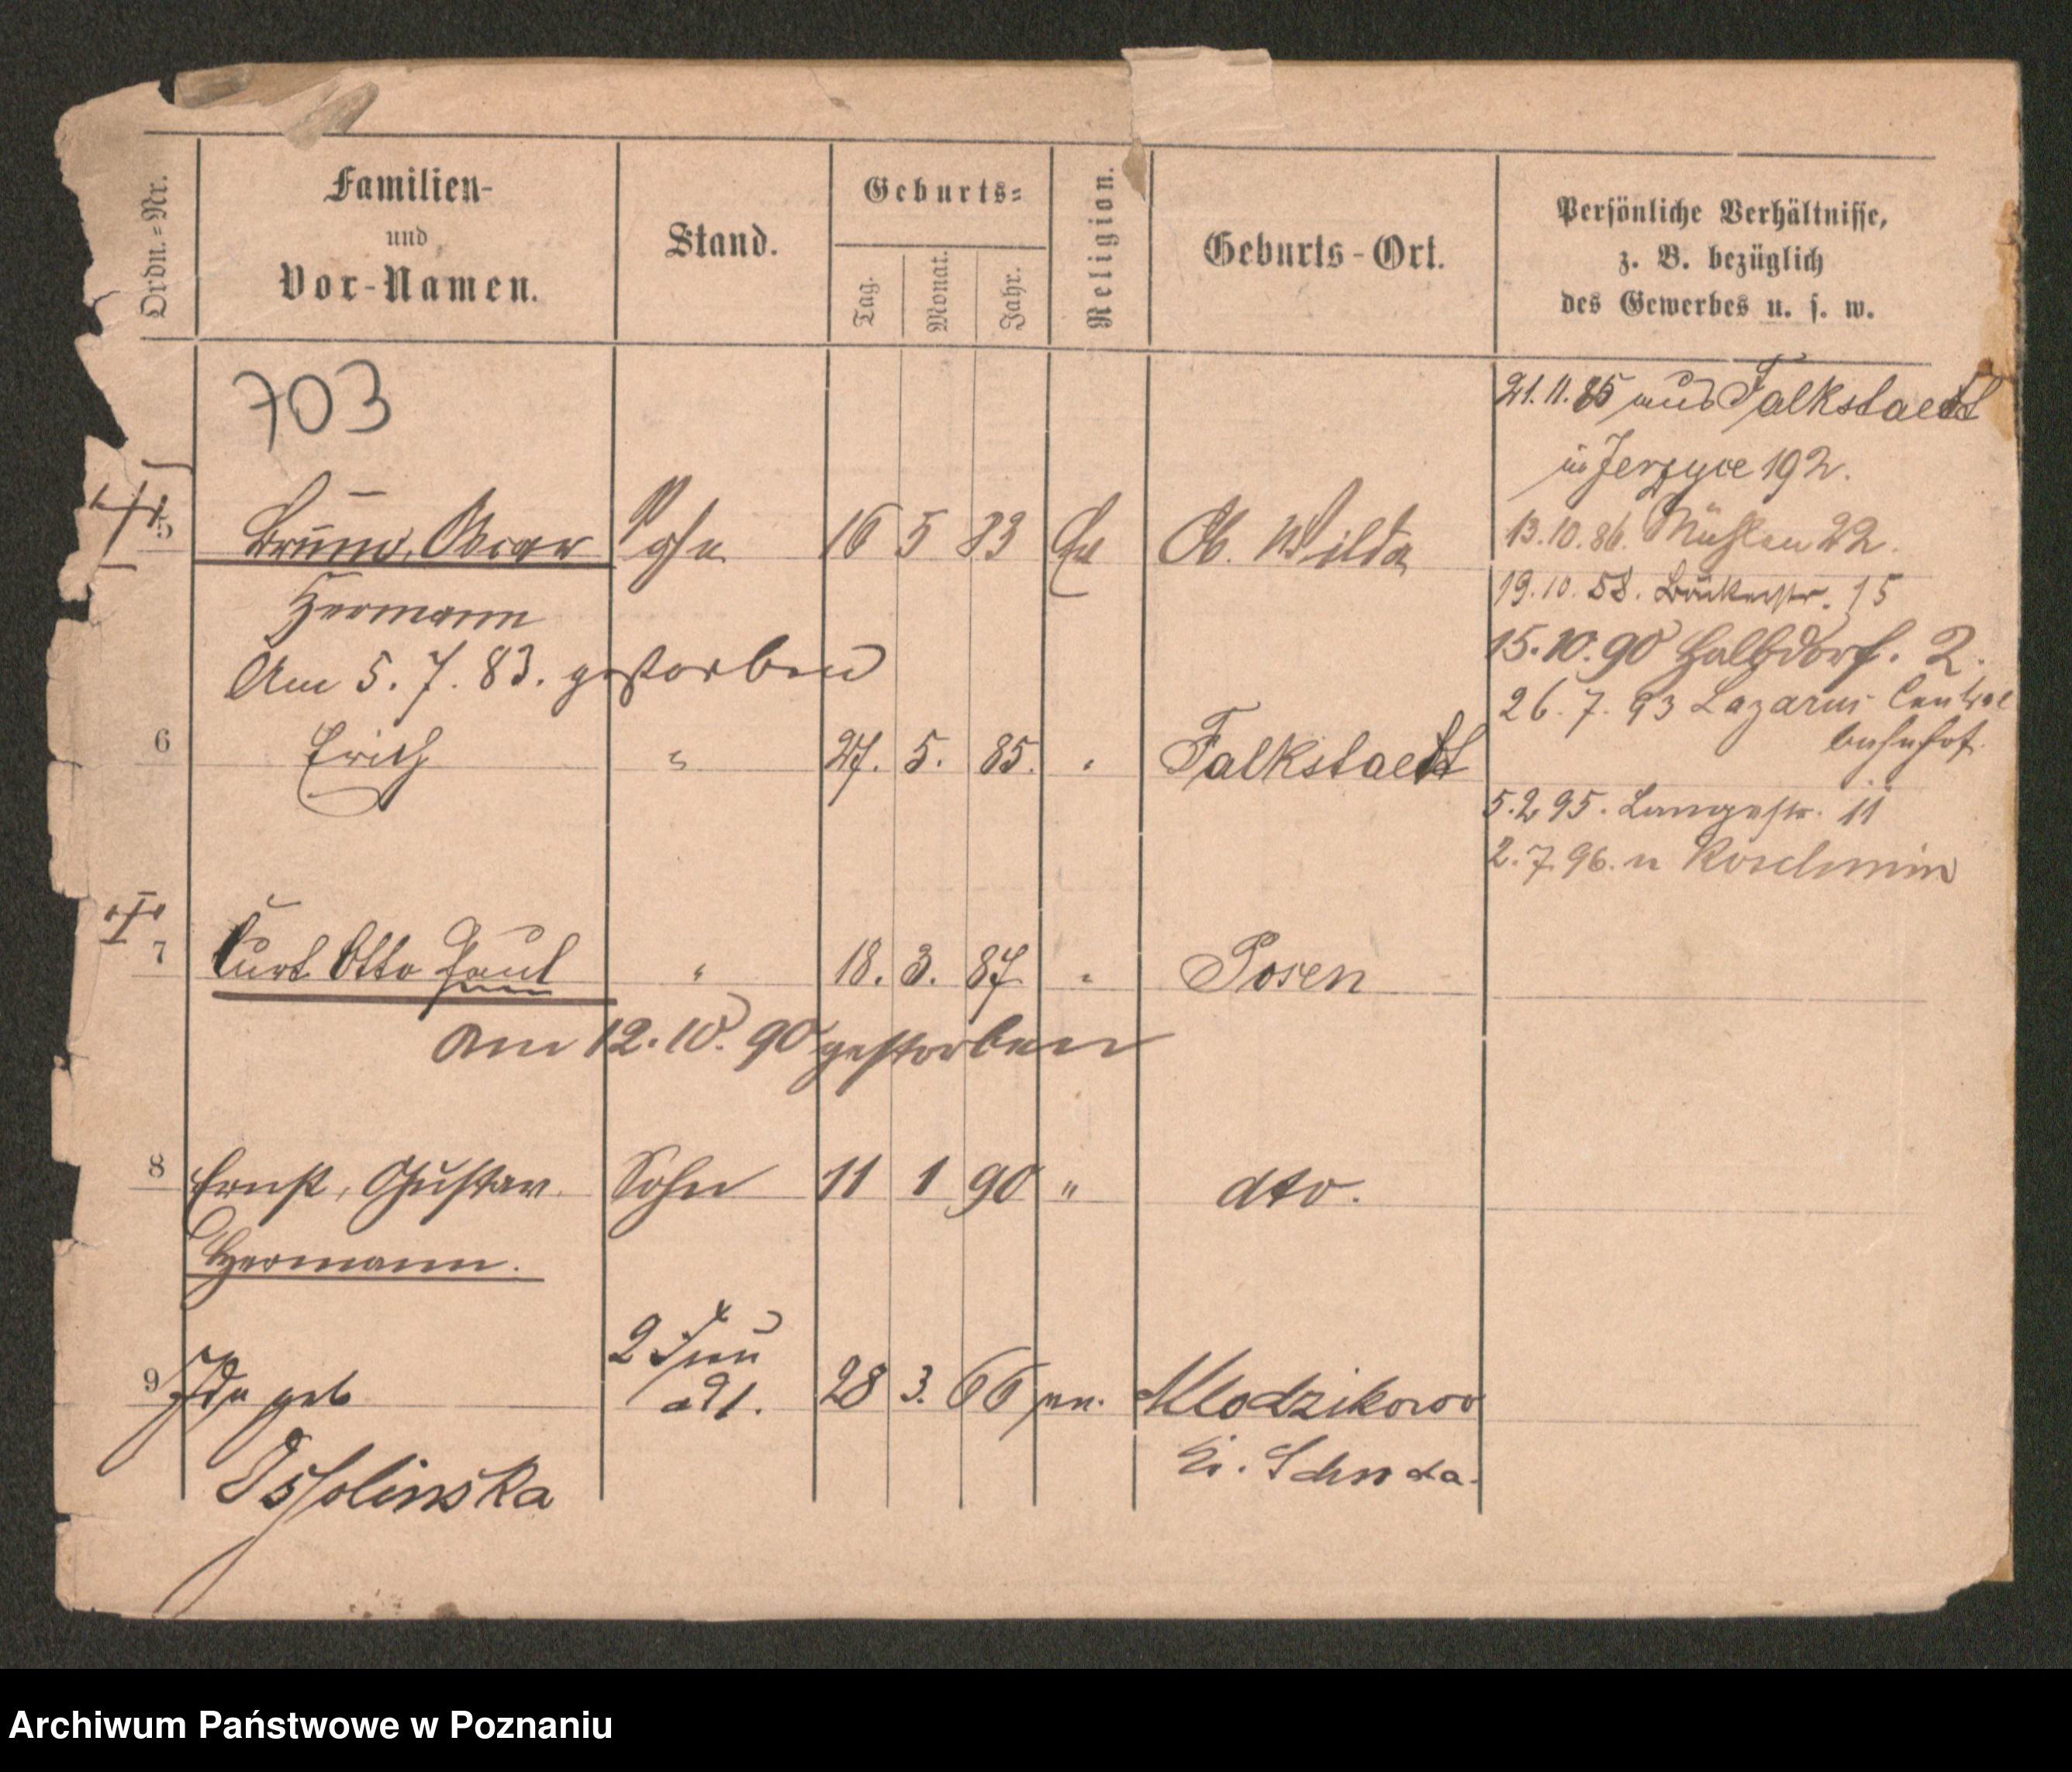 Ordn.=Nr.
Familien-
und
Vor-Namen.
Stand.
Geburts=
Tag.
Monat.
Jahr.
Religion.
Geburts-Ort.
Persönliche Verhältnisse,
z. B. bezüglich
des Gewerbes u. s. w.
703
21.11.85 aus Falkstaedt
in Jerzyce 192.
5 Bruno, Oscar Sohn 16 5 83 Ev Ob. Wilda
13.10.86. Mühlen 22.
Hermann
19.10.88. Bäckerstr. 15
Am 5. 7. 83. gestorben
15.10.90 Halbdorf. 2.
26. 7. 93 Lazarus Central
bahnhof.
6 Erich " 27. 5. 85. " Falkstaedt
5.2.95. Langestr. 11
2.7.96. n Koschmin
7 Curt Otto Paul " 18. 3. 87 " Posen
Am 12.10.90 gestorben
8 Ernst, Gustav Sohn 11 1 90 " dto.
Hermann.
2 Frau
9 Ida geb 28 3. 66 Mlodzikowo
Ossolinska Kr. Schroda.
Archiwum Państwowe w Poznaniu